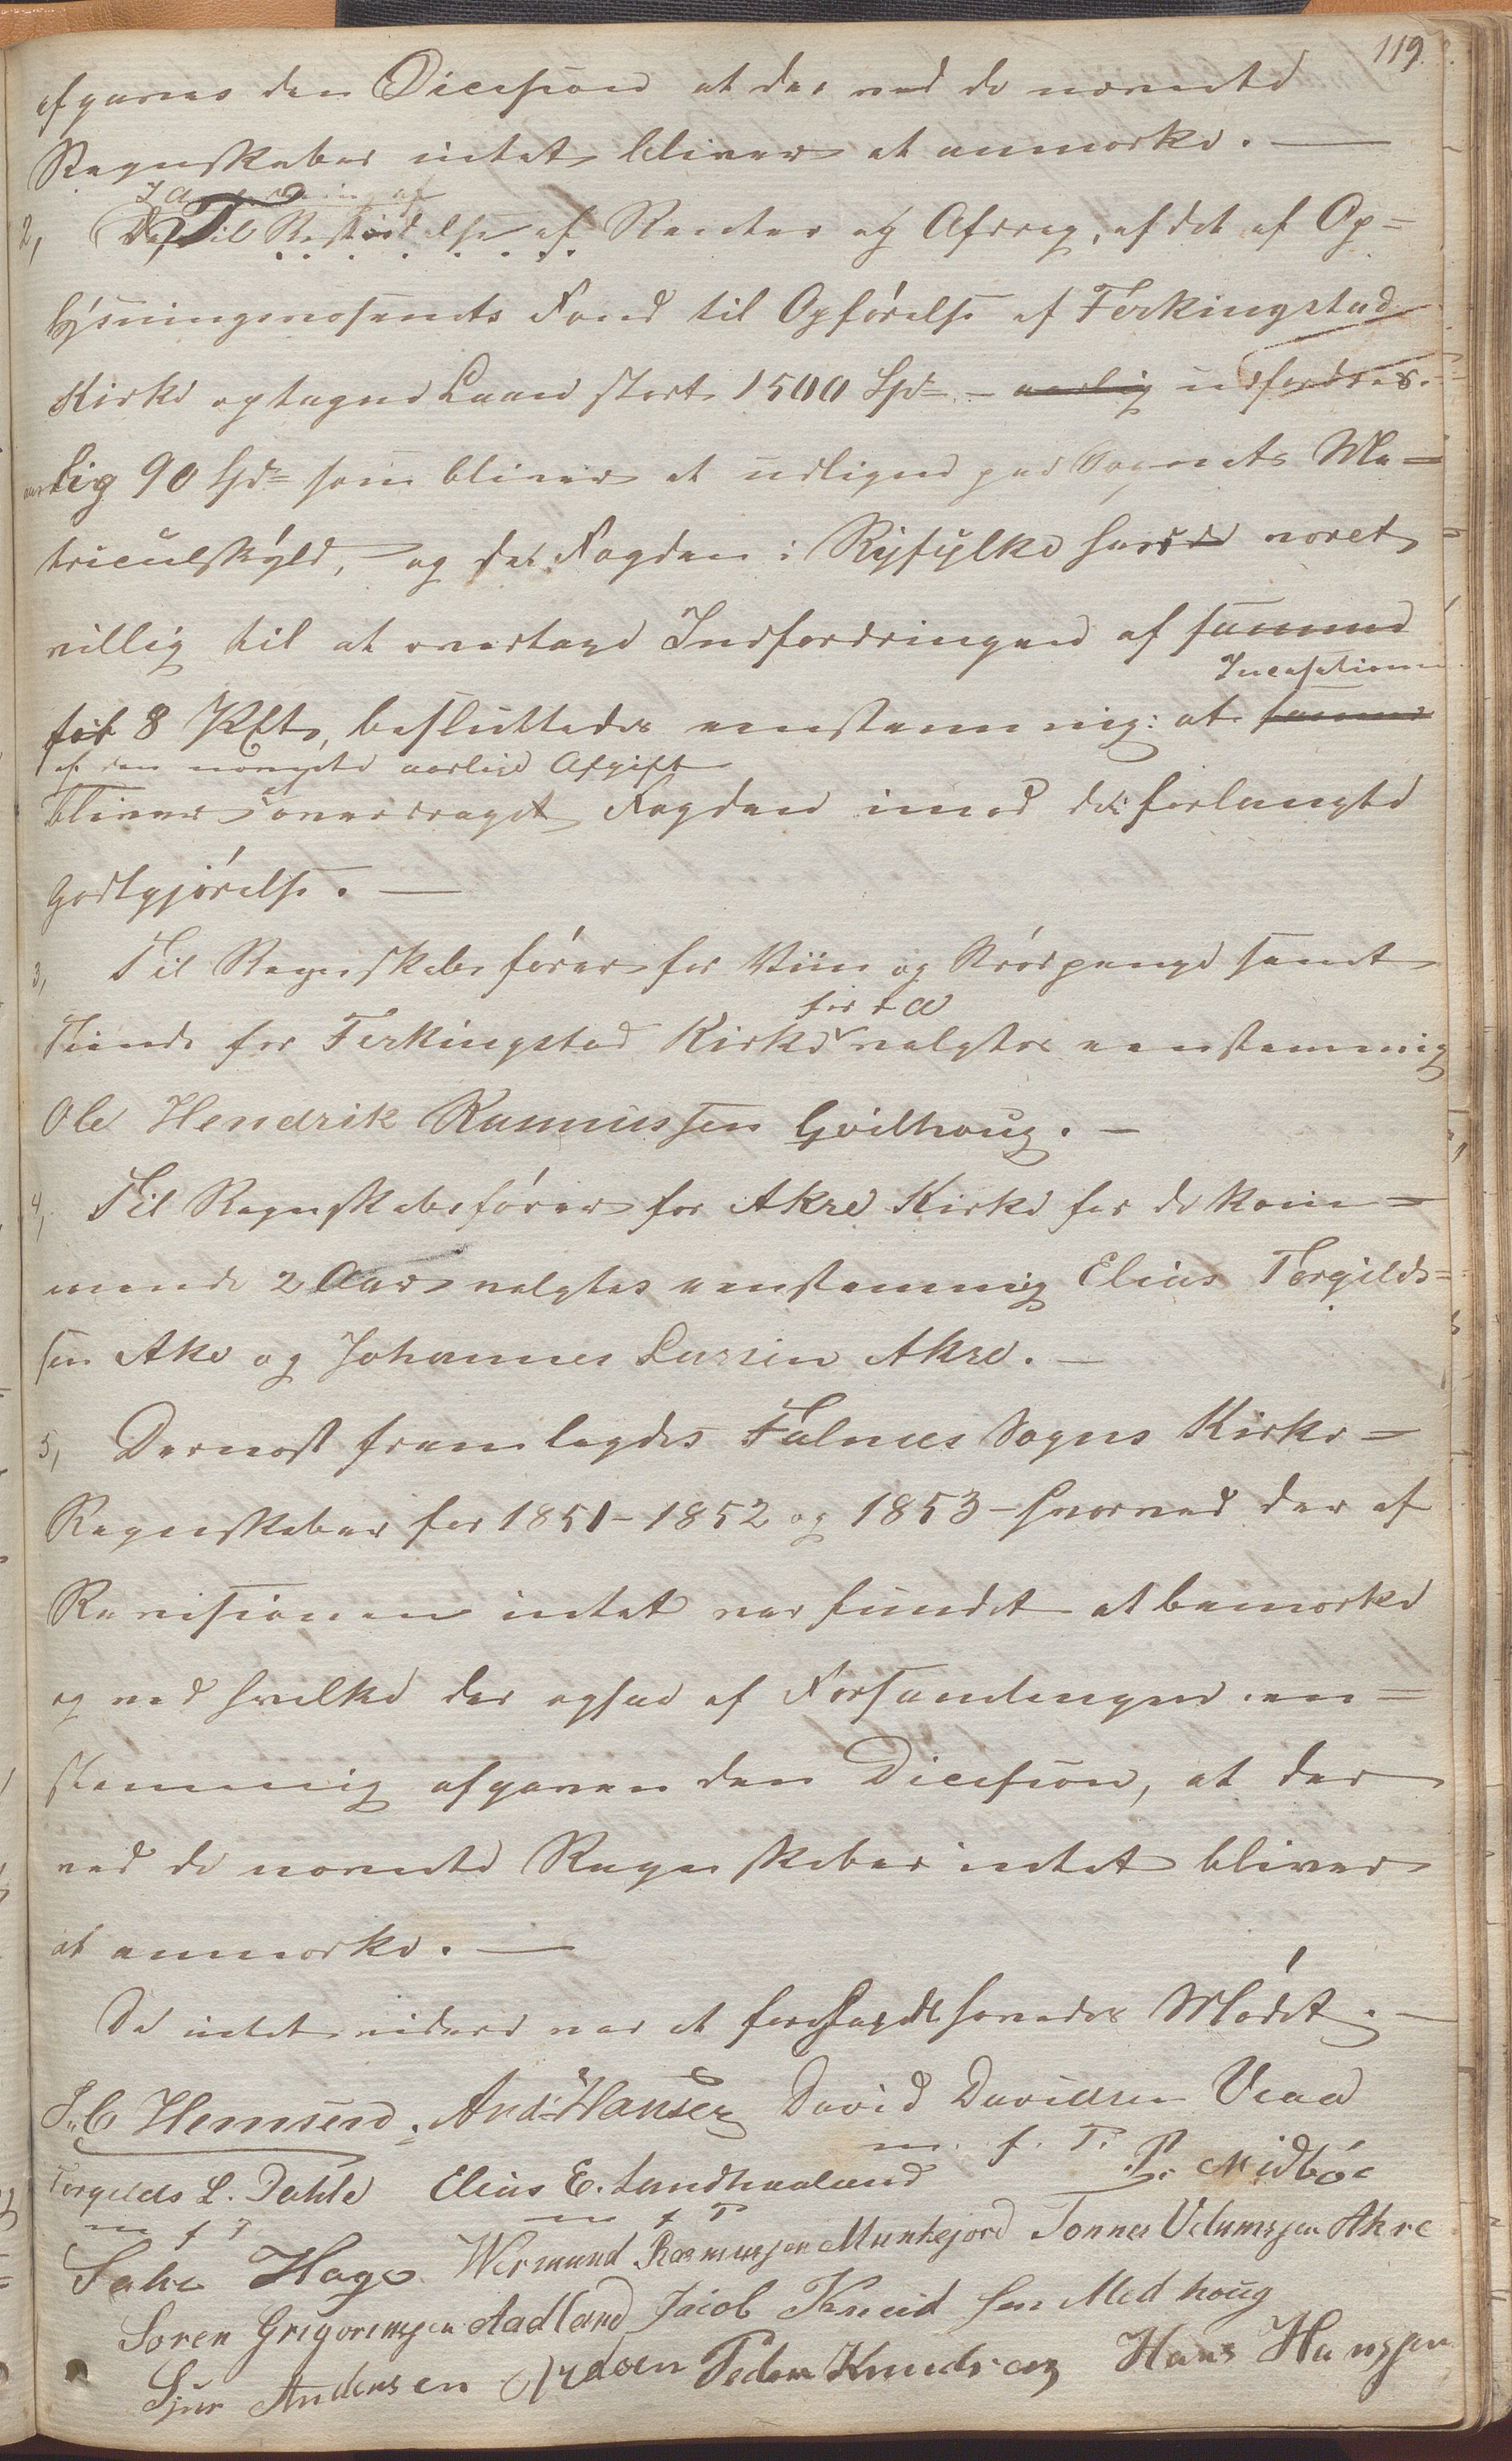 119.
afgaves den Dicission at der ved de nævnte
Regnskaber intet bliver at anmærke. —
2, Til Bestridelse af Renter og Afdrag, af det af Op=
lysningsvæsenets Fond til Opførelse af Ferkingstad
Kirke optagne Laan stort 1500 Spd - aarlig udfordres
aarlig 90 Spd som bliver at udligne paa Sognets Ma=
triculskyld, og da Fogden i Ryfylke havde været
villig til at overtage Indfordringen af samme
Incasationen
for 8 %, besluttedes eenstemmig: at samme
af den nævnte aarlige Afgift
bliver overdraget Fogden imod den forlangte
Godtgjørelse. —
3, Til Regnskabsfører for Viin og Brødpenge samt
for 2 Aar
Tiende for Ferkingstad Kirke valgtes eenstemmig
Ole Hendrik Rasmussen Gvilhoug. —
4, Til Regnskabsfører for Akre Kirke for de kom=
mende 2 Aar valgtes eenstemmig Elias Torgilds=
sen Akre og Johannes Larsen Akre. —
5, Dernæst fremlagdes Falnæs Sogns Kirke=
Regnskaber for 1851 - 1852 og 1853 - hvorved der af
Revisionen intet var fundet at bemærke
og ved hvilke der ogsaa af Forsamlingen een=
stemmig afgaves den Dicission, at der
ved de nævnte Regnskaber intet bliver
at anmærke. —
Da intet videre var at foretage hævedes Mødet. —
Hemsen. And: Hansen David Davidsen Vraa
m. f. P.
Torgilds L. Dahle Elias E. Sandhaaland P. Midbøe
m f P m f P
Hago Wermund Rasmussen Munkejord Tonnes Velumssen Akre
Soren Grigoriussen Aadland Jacob Knud sen Medhoug
Sjur Andersen Peder Knudsen Hans Hanssen